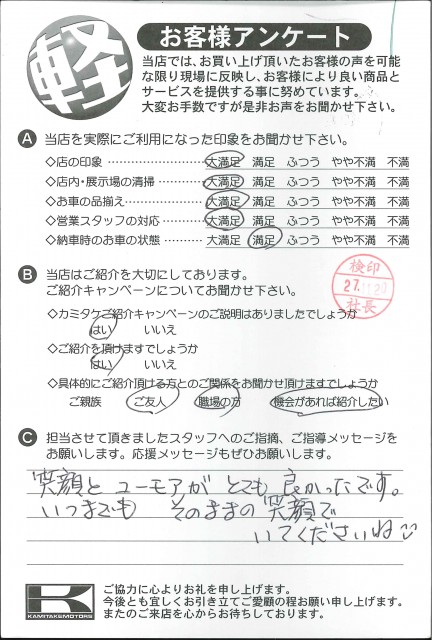 軽
お客様アンケート
当店では、お買い上げ頂いたお客様の声を可能
な限り現場に反映し、お客様により良い商品と
サービスを提供する事に努めています。
大変お手数ですが是非お声をお聞かせ下さい。
A 当店を実際にご利用になった印象をお聞かせ下さい。
◇店の印象 ………………… 大満足 満足 ふつう やや不満 不満
◇店内・展示場の清掃 ……… 大満足 満足 ふつう やや不満 不満
◇お車の品揃え …………… 大満足 満足 ふつう やや不満 不満
◇営業スタッフの対応 ……… 大満足 満足 ふつう やや不満 不満
◇納車時のお車の状態 ……… 大満足 満足 ふつう やや不満 不満
B 当店はご紹介を大切にしております。
ご紹介キャンペーンについてお聞かせ下さい。
検印
社長
◇カミタケご紹介キャンペーンのご説明はありましたでしょうか
はい いいえ
◇ご紹介を頂けますでしょうか
はい いいえ
◇具体的にご紹介頂ける方とのご関係をお聞かせ頂けますでしょうか
ご親族 ご友人 職場の方 機会があれば紹介したい
C 担当させて頂きましたスタッフへのご指摘、ご指導メッセージを
お願いします。応援メッセージもぜひお願いします。
笑顔と ユーモアが とても 良かったです。
いつまでも そのままの 笑顔で
いてくださいね
KAMITAKEMOTORS
ご協力に心よりお礼を申し上げます。
今後とも宜しくお引き立てご愛顧の程お願い申し上げます。
またのご来店を心からお待ちしております。